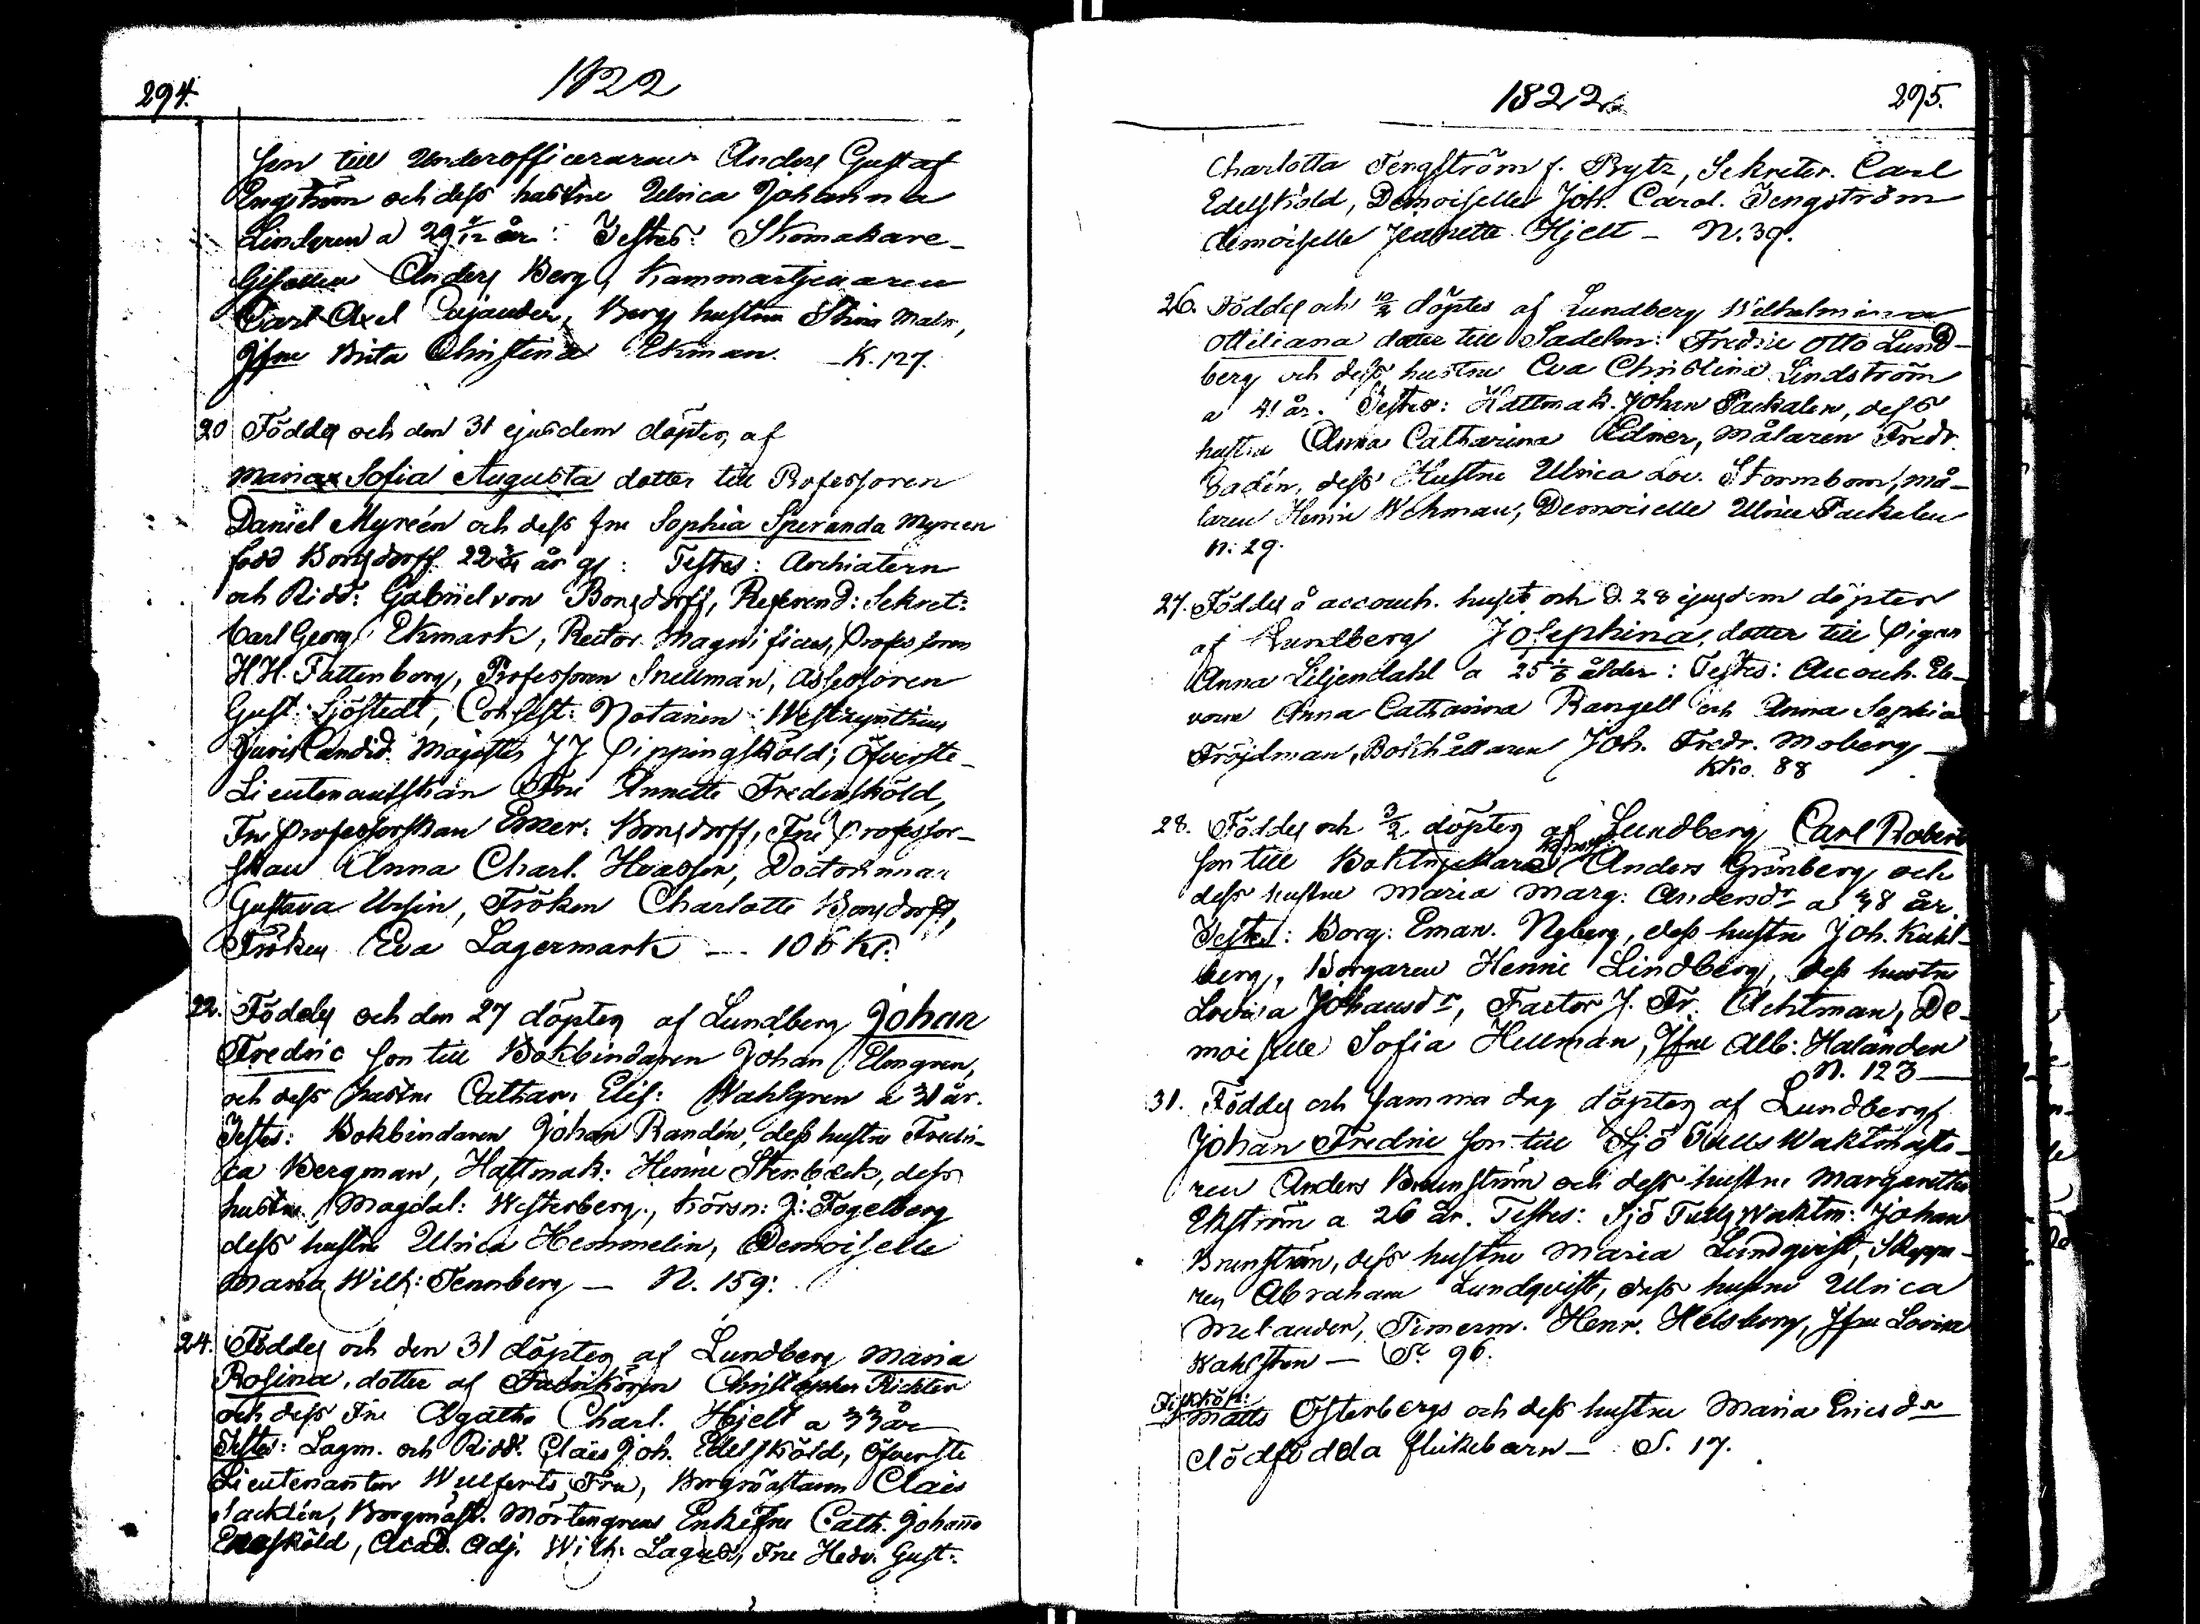 294.
1822
Son till Underofficeraren Anders Gustaf
Engström och dess hustru Ulrica Johanna
Lindgren a 29 år: Testes: Skomakare-
Gesällen Anders Berg, Kammartjenaren
Carl Axel Cajander, Bergs hustru Stina Malm,
Jfru Brita Christina Ekman. K. 127.
20 Föddes och den 31 ejusdem döptes af
Maria Sofia Augusta dotter till Professoren
Daniel Myreén och dess fru Sophia Speranda Myreen
född Bonsdorff 22 år gl: Testes: Archiatern
och Ridd: Gabriel von Bonsdorff, Referend: Sekret:
Carl Georg Ekmark, Rector Magnificus, Professoren
H H. Fattenborg, Professoren Snellman, Assessoren
Gust. Sjöstedt, Consist: Notarien Westzynthius
Juris Candid. Magister J J Pippingsköld, Öfverste-
Lieutenantskan Fru Annette Fredensköld,
Fru Professorskan Emer. Bonsdorff, Fru Professor-
skan Anna Charl. Haasser, Doctorinnan
Gustava Ursin, Fröken Charlotte Bonsdorff,
Fröken Eva Lagermark - - 106 Kl.
22. Föddes och den 27 döptes af Lundberg Johan
Fredric Son till Bokbindaren Johan Elmgren,
och dess hustru Cathar. Elis: Wahlgren a 31 år.
Testes: Bokbindaren Johan Randén, dess hustru Fredri-
ca Bergman, Hattmak: Henric Stenbeck, dess
hustru Magdal: Westerberg, Körsn: J: Fogelberg
dess hustru Ulrica Hemmelin, Demoiselle
Maria Wilh: Tennberg — N. 159:
24. Föddes och den 31 döptes af Lundberg Maria
Rosina, dotter af Fabrikören Christopher Richter
och dess Fru Agatha Charl. Hjelt a 33 år
Testes: Lagm. och Ridd. Claës Joh. Edelsköld, Öfverste
Lieutenanten Wulferts Fru, Borgmästaren Claës
Sacklén, Borgmäst. Mörtengrens Enkefru Cath. Johanna
Ehrnsköld, Acad. Adj. Wilh. Lagus, Fru Hedv. Gust:
1822
295.
Charlotta Tengström f. Bytz, Sekreter. Carl
Edelsköld, Demoiselles Joh. Carol. Tengström
demoiselle Jeanette Hjelt — N. 39.
26. Föddes och 10/2 döptes af Lundberg Wilhelmina
Ottiliana dotter till Sadelm: Fredric Otto Lund-
berg och dess hustru Eva Christina Lindström
a 41 år. Testes: Hattmak. Johan Packalen, dess
hustru Anna Catharina Edner, Målaren Fredr.
Sadén, dess Hustru Ulrica Lov. Stormbom, må-
laren Henric Wehman, Demoiselle Ulrica Packalen
N: 29.
27. Föddes å accouch. huset och d. 28 ejusdem döptes
af Lundberg Josephina, dotter till Pigan
Anna Liljendahl a 25 ålder: Testes: Accouch. Ele-
verne Anna Catharina Rangell och Anna Sophia
Fröjdman, Bokhållaren Joh. Fredr. Moberg —
Kko. 88
28. Föddes och 3/2 döptes af Lundberg Carl Robert
Son till Boktryckare Anders Grönberg och
dess hustru Maria Marg: Andersdr a 38 år
Testes: Borg: Eman. Nyberg, dess hustru Joh. Kuhl-
berg, Borgaren Henric Lindberg, dess hustru
Lovisa Johansdr, Factor J. Fr. Achtman, De-
moiselle Sofia Hellman, Jfru Alb: Halander
N. 123 —
31. Föddes och samma dag döptes af Lundberg
Johan Fredric Son till Sjö Tulls Waktmäste-
ren Anders Brunström och dess hustru Margaretha
Ekström a 26 år. Testes: Sjö Tulls Waktm: Johan
Brunström, dess hustru Maria Lundqvist, Skeppa-
ren Abraham Lundqvist, dess hustru Ulrica
Melander, Timerm. Henr. Helsberg, Jfru Lovisa
Wahlsten — S: 96.
Fiskköp:
Matts Österbergs och dess hustru Maria Ericsdr
dödfödda flickebarn — S. 17.